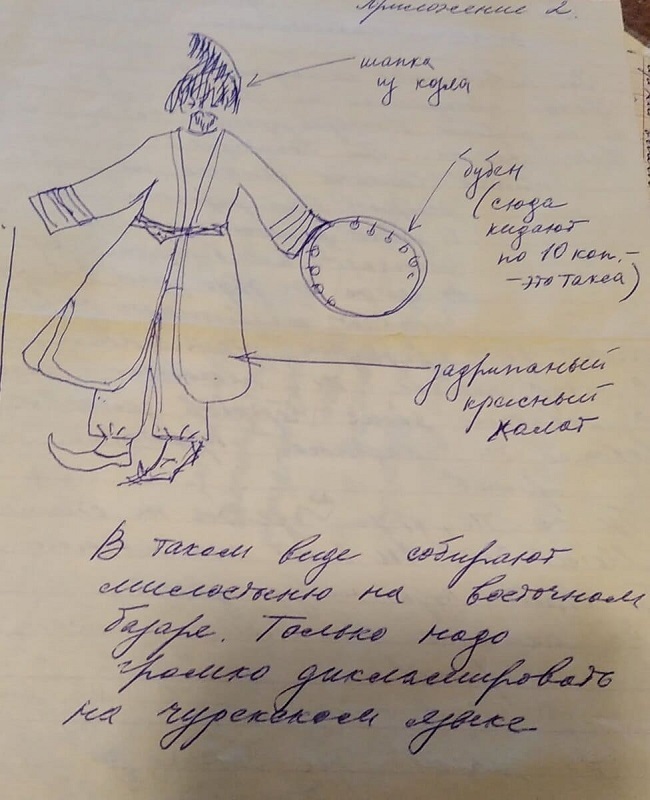 Приложение 2.
шапка
из козла
бубен
(сюда
кидают
по 10 коп. -
- это такса)
задрипаный
красный
халат
В таком виде собирают
милостыню на восточном
базаре. Только надо
громко дикламировать
на чурекском языке